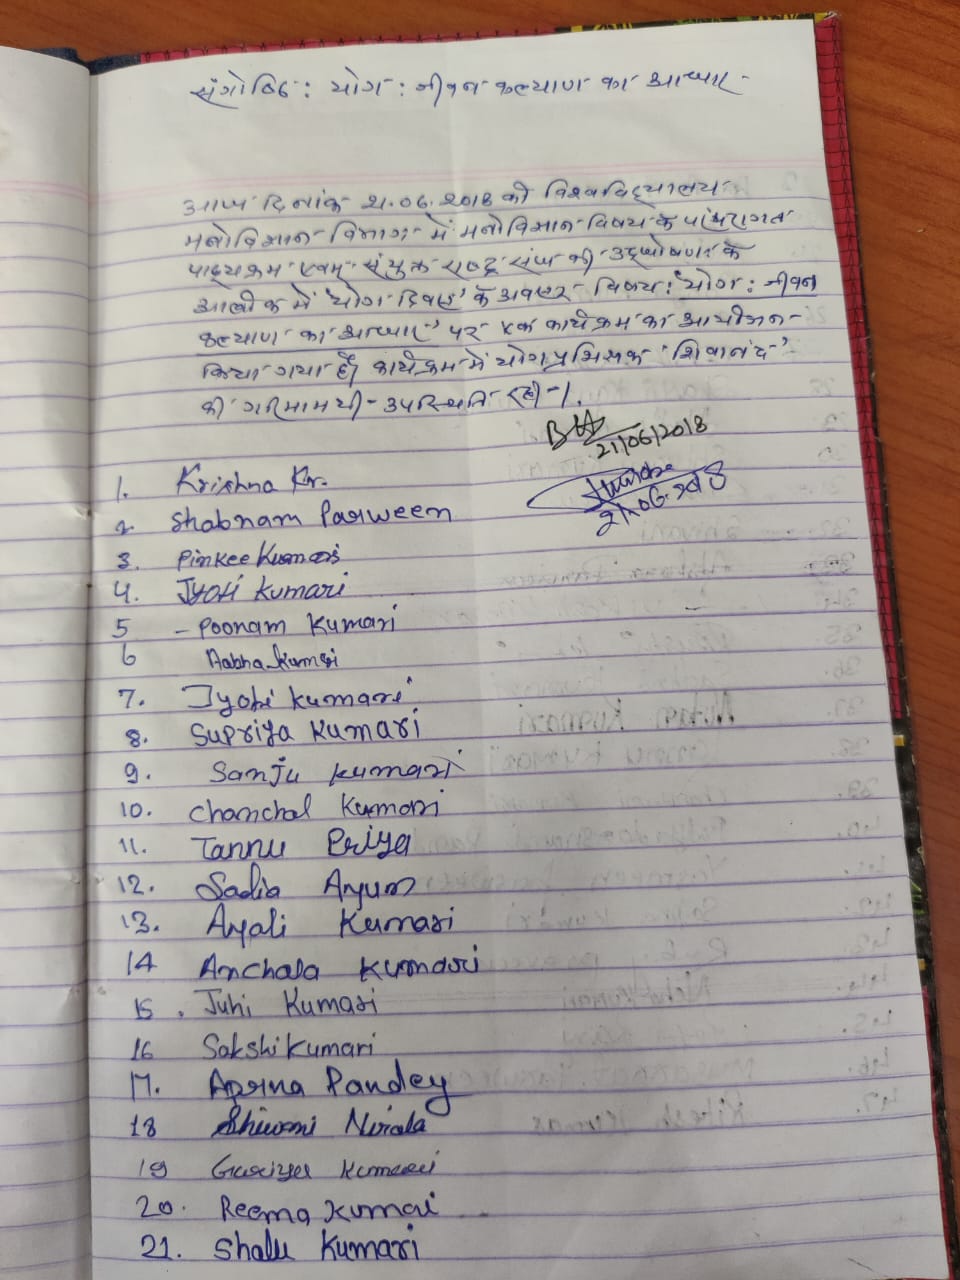 संगोष्ठि : योग : जीवन कल्याण का आधार
आज दिनांक 21.06.2018 को विश्वविद्यालय
मनोविज्ञान विभाग में मनोविज्ञान विषय के परंपरागत
पाठ्यक्रम एवम् संयुक्त राष्ट्र संघ की उद्घोषणा के
आलोक में 'योग दिवस' के अवसर विषय : 'योग : जीवन
कल्याण का आधार' पर एक कार्यक्रम का आयोजन
किया गया है। कार्यक्रम में योग प्रशिक्षक 'शिवानंद'
की गरिमामयी उपस्थिति रही।
21/06/2018
21.06.2018
1. Krishna Kr.
2. Shabnam Parween
3. Pinkee Kumari
4. Jyoti Kumari
5 - Poonam Kumari
6 Aabha Kumari
7. Jyoti Kumari
8. Supriya Kumari
9. Sanju Kumari
10. Chanchal Kumari
11. Tannu Priya
12. Sadia Anjum
13. Anjali Kumari
14 Anchala Kumari
15. Juhi Kumari
16 Sakshi Kumari
17. Aprna Pandey
18 Shivani Nirala
19 Guriya Kumari
20. Reema Kumari
21. Shalu Kumari